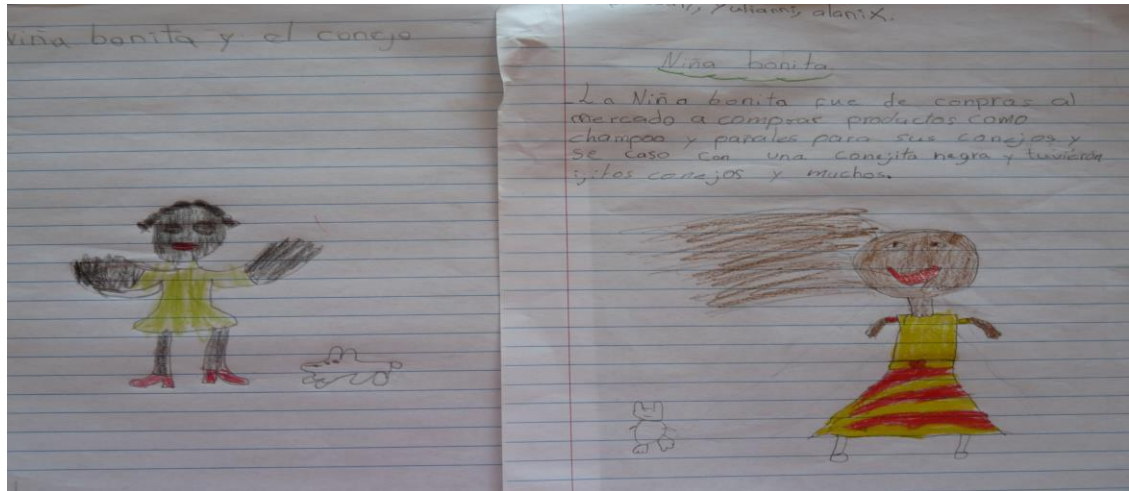 Niña bonita y el conejo
Yulianni, alanix.
Niña bonita
La Niña bonita fue de conpras al
mercado a comprar productos como
champoo y papales para sus conejos y
se caso con una conejita negra y tuvieron
ijitos conejos y muchos.